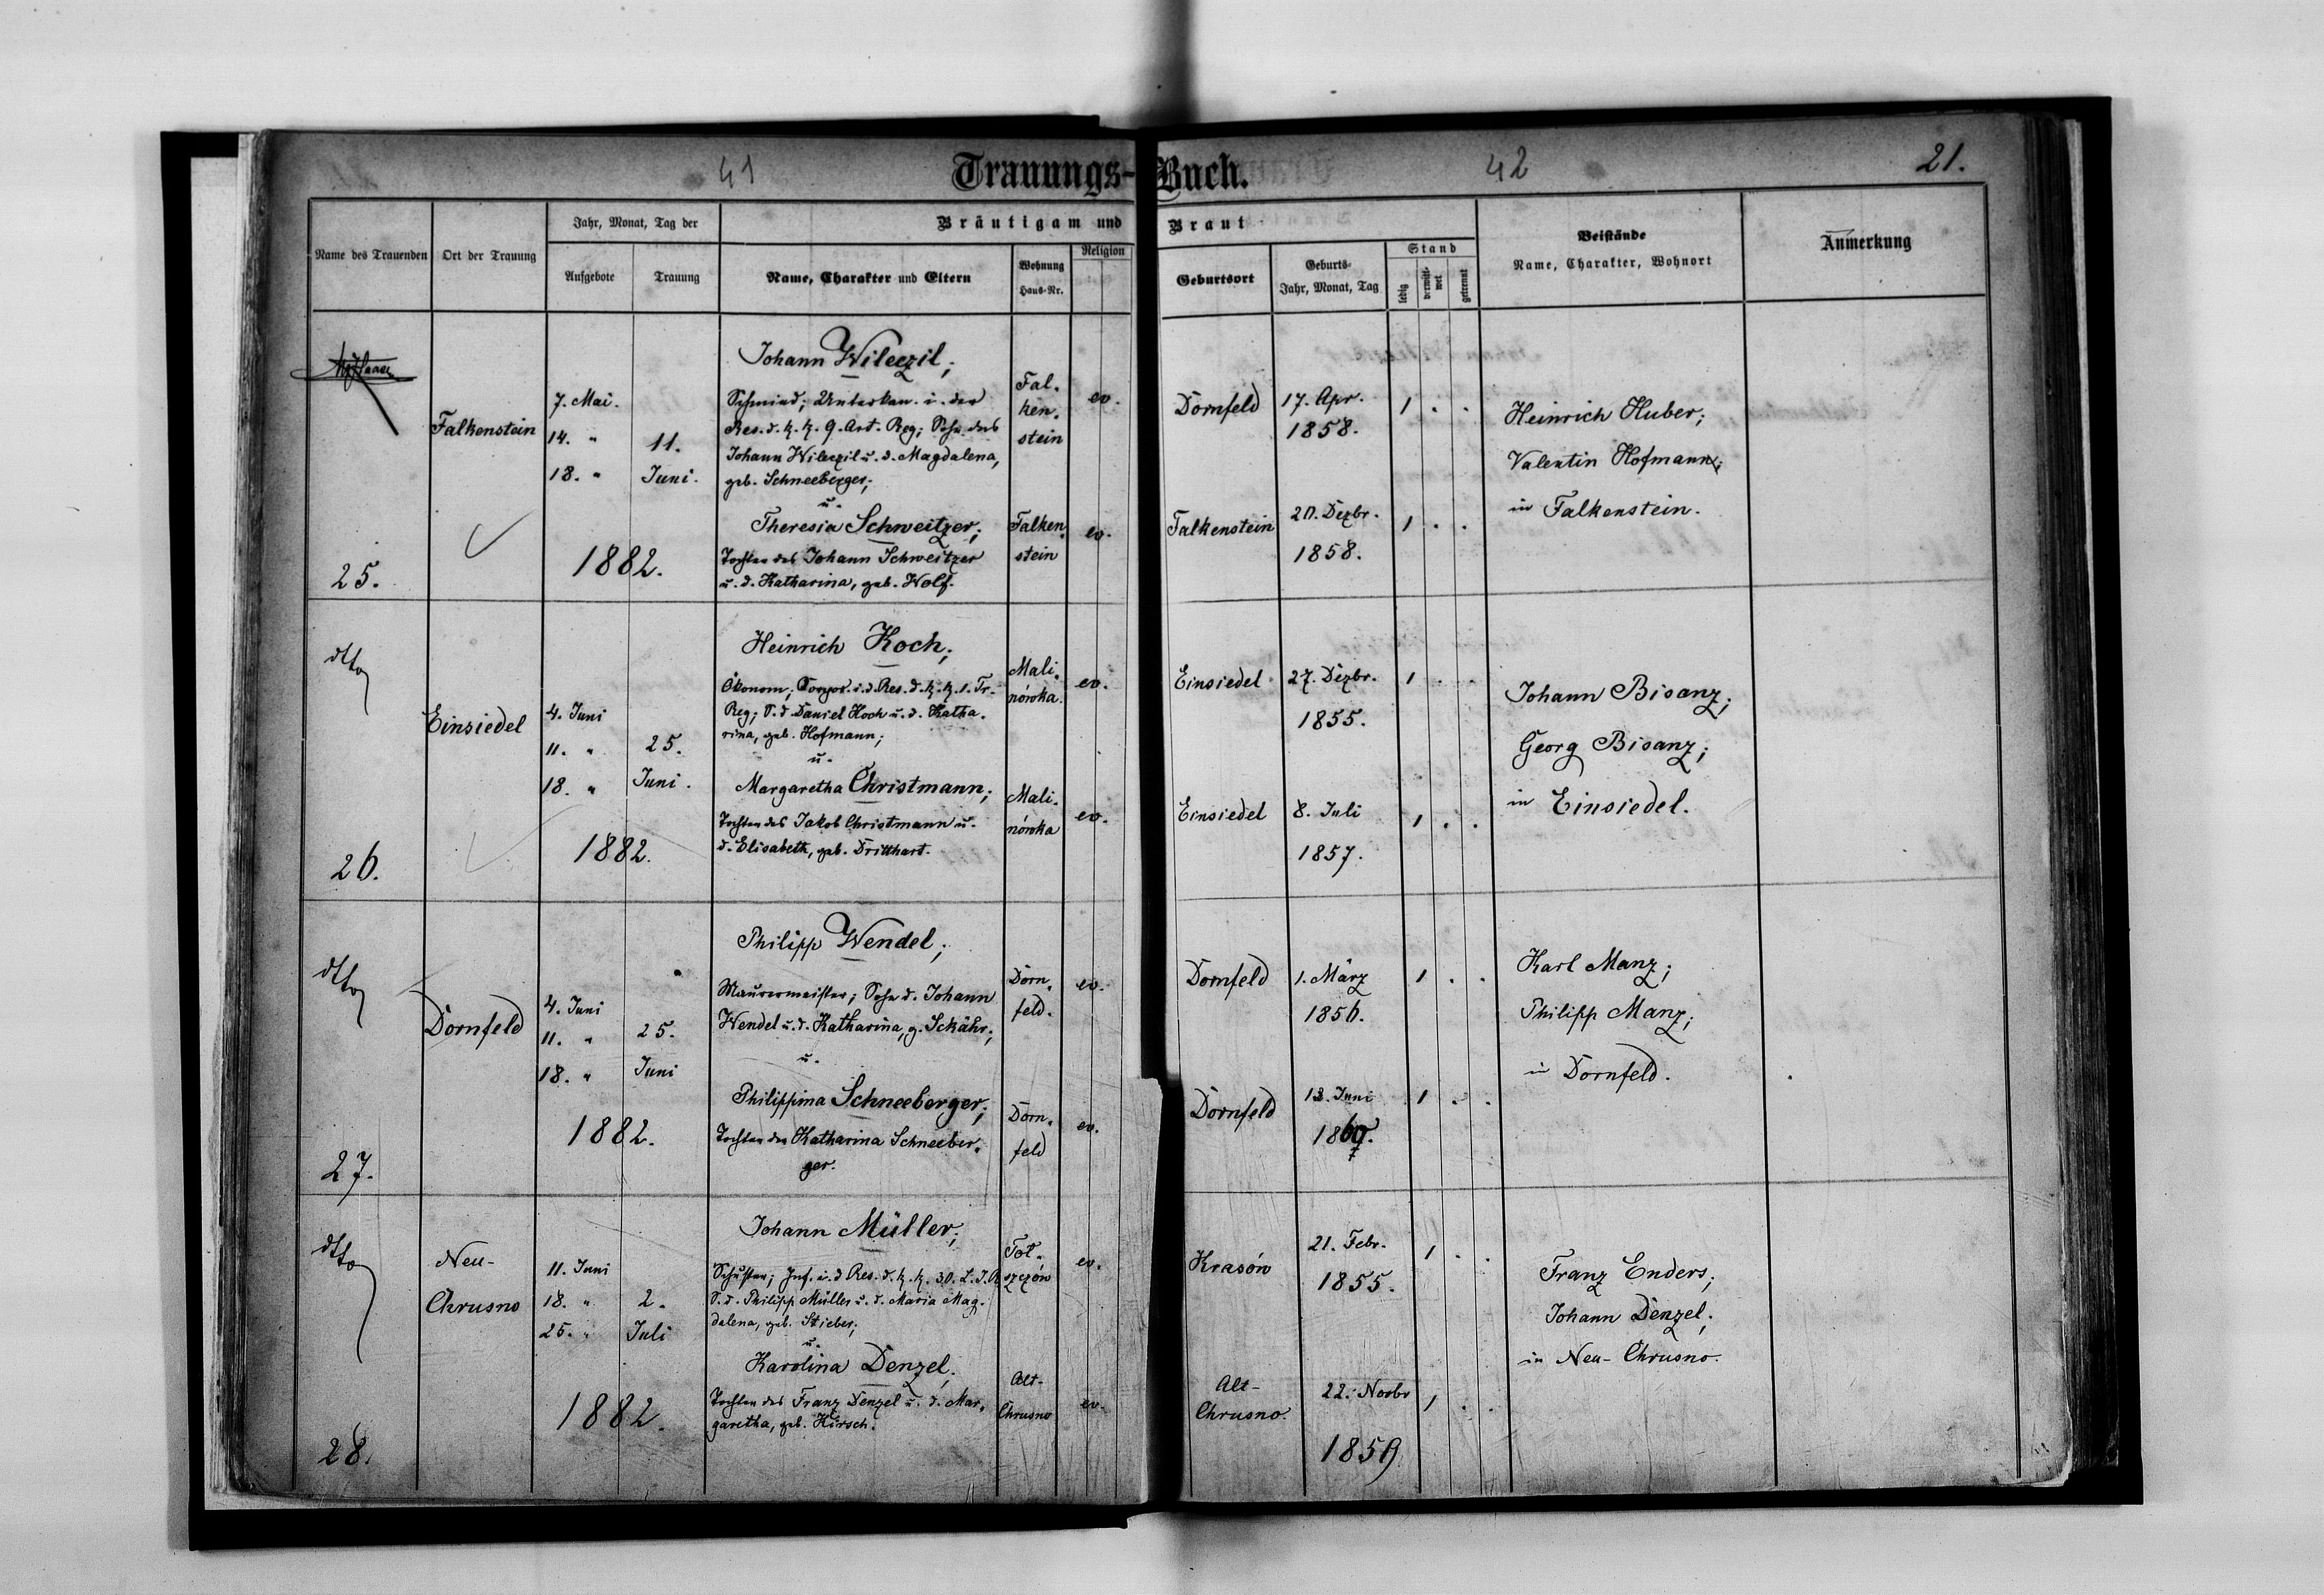 41
Trauungs-Buch.
42
21.
Name des Trauenden
Ort der Trauung
Jahr, Monat, Tag der
Aufgebote
Trauung
Bräutigam und Braut
Name, Charakter und Eltern
Wohnung
Haus-Nr.
Religion
Geburtsort
Geburts-
Jahr, Monat, Tag
Stand
ledig
verwitt-
wet
getrennt
Beistände
Name, Charakter, Wohnort
Anmerkung
25.
Falkenstein
7. Mai.
14. "
18. "
11.
Juni.
1882.
Johann Wileczil;
Schmied; Unterkan. i. der
Res. d. k. k. 9. Art. Reg; Sohn des
Johann Wileczil u. d. Magdalena,
geb. Schneeberger;
u.
Theresia Schweitzer;
Tochter des Johann Schweitzer
u. d. Katharina, geb. Wolf.
Fal-
ken-
stein
ev.
Falken-
stein
ev.
Dornfeld
17. Apr.
1858.
1 . .
Falkenstein
20. Dezbr.
1858.
1 . .
Heinrich Huber;
Valentin Hofmann;
in Falkenstein.
dtto
26.
Einsiedel
4. Juni
11. "
18. "
25.
Juni.
1882.
Heinrich Koch;
Ökonom; Korpor. i. d. Res. d. k. k. 1. Tr-
Reg; S. d. Daniel Koch u. d. Katha-
rina, geb. Hofmann;
u.
Margaretha Christmann;
Tochter des Jakob Christmann u.
d. Elisabeth, geb. Dritthart.
Mali-
nówka.
ev.
Mali-
nówka
ev.
Einsiedel
27. Dezbr.
1855.
1 . .
Einsiedel
8. Juli
1857.
1 . .
Johann Bisanz;
Georg Bisanz;
in Einsiedel.
dtto
27.
Dornfeld
4. Juni
11. "
18. "
25.
Juni
1882.
Philipp Wendel;
Maurermeister; Sohn d. Johann
Wendel u. d. Katharina, g. Schähr;
u.
Philippina Schneeberger;
Tochter der Katharina Schneeber-
ger.
Dorn-
feld.
ev.
Dorn-
feld
ev.
Dornfeld
1. März
1856.
1 . .
Dornfeld
13. Juni
1 . .
Karl Manz;
Philipp Manz;
in Dornfeld.
dtto
28.
Neu-
Chrusno
11. Juni
18. "
25. "
2.
Juli
1882.
Johann Müller;
Schuster; Inf. i. d. Res. d. k. k. 30. L. I. R
S. d. Philipp Müller u. d. Maria Mag-
dalena, geb. Stieber;
u.
Karolina Denzel;
Tochter des Franz Denzel u. d. Mar-
garetha, geb. Hirsch.
Tol-
szczów
ev.
Alt-
Chrusno
ev.
Krasów
21. Febr.
1855.
1 . .
Alt-
Chrusno.
22. Novbr
1859
1 . .
Franz Enders;
Johann Denzel;
in Neu-Chrusno.